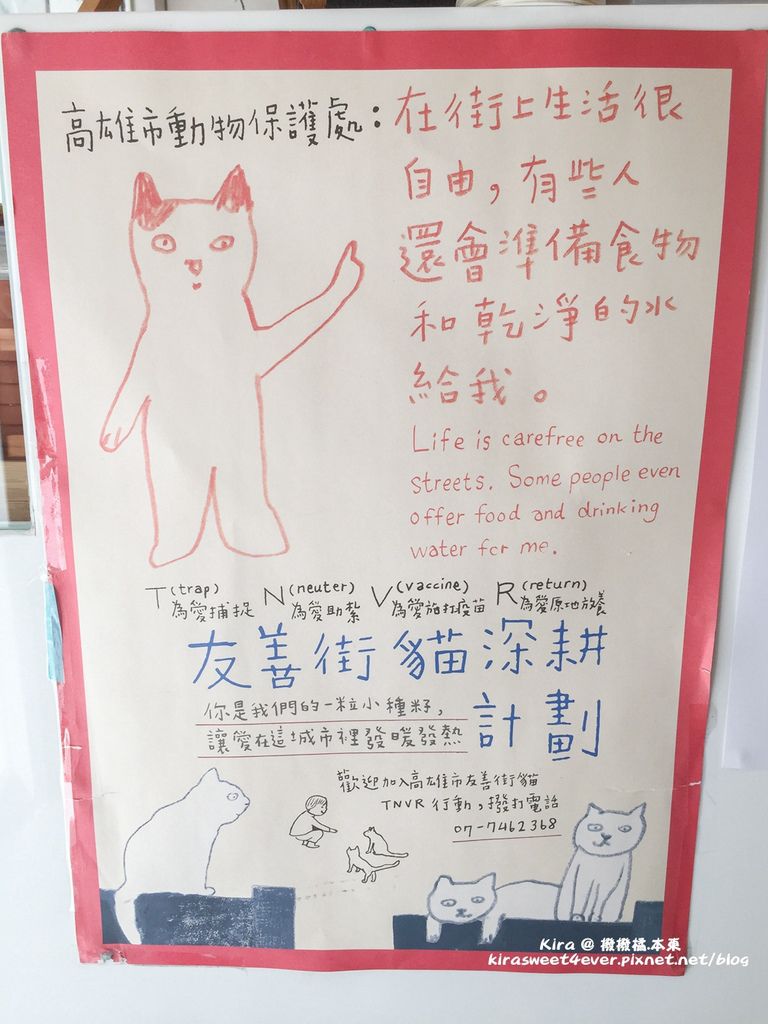 高雄市動物保護處：在街上生活很
自由，有些人
還會準備食物
和乾淨的水
給我。
Life is carefree on the
streets. Some people even
offer food and drinking
water for me.
T(trap) N(neuter) V(vaccine) R(return)
為愛捕捉 為愛助紮 為愛施打疫苗 為愛原地放養
友善街貓深耕
計劃
你是我們的一粒小種籽，
讓愛在這城市裡發暖發熱
歡迎加入高雄市友善街貓
TNVR行動，撥打電話
07-7462368
Kira @ 撒撒橘.本東
kirasweet4ever.pixnet.net/blog